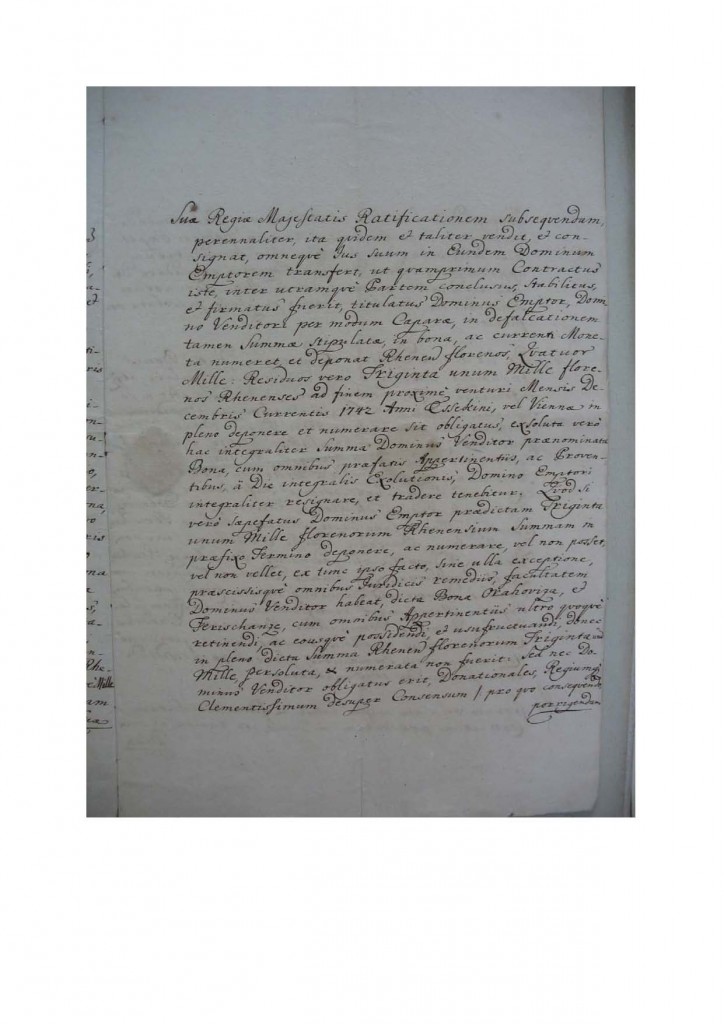 Suæ Regiæ Majestatis Ratificationem subseqvendam,
perennaliter, ita qvidem et taliter vendit, et con-
signat, omneqvè Jus suum in Eundem Dominum
Emptorem transfert, ut qvamprimum Contractus
iste, inter utramqvè Partem conclusus, stabilitus,
et firmatus fuerit, titulatus Dominus Emptor, Domi
no Venditori per modum Caparæ, in defalcationem
tamen Summæ Stipulatæ, in bona, ac currenti Mone-
ta numeret, et deponat Rhenen florenos, Qvatuor
Mille: Residuos vero Triginta unum Mille flore-
nos Rhenenses ad finem proximè venturi Mensis De-
cembris Currentis 1742 Anni Essekini, vel Viennæ in
pleno deponere et numerare sit obligatus, exsoluta verò
hac integraliter Summa Dominus Venditor prænominata
Bona, cum omnibus præfatis Appertinentiis, ac Proven-
tibus, à Die integralis Exolutionis, Domino Emptori
integraliter resignare, et tradere tenebitur. Qvod si
verò sæpefatus Dominus Emptor prædictam Triginta
unum Mille florenorum Rhenensium Summam in
præfixo Termino deponere, ac numerare, vel non posset,
vel non vellet, ex tunc ipso facto, sine ulla exceptione,
præscissisqvè omnibus Juridicis remediis, facultatem
Dominus Venditor habeat, dicta Bona Orahoviza, et
Ferischanze, cum omnibus Appertinentiis ultro qvoqvè
retinendi, ac eousqvè possidendi, et usufructuandi, donec
in pleno dicta Summa Rhenen florenorum Triginta
Mille, persoluta, & numerata non fuerit. Sed nec Do-
minus Venditor obligatus erit, Donationales, Regiumqvè
Clementissimum desuper Consensum / pro qvo conseqvendo
porrigendam
3
Mille